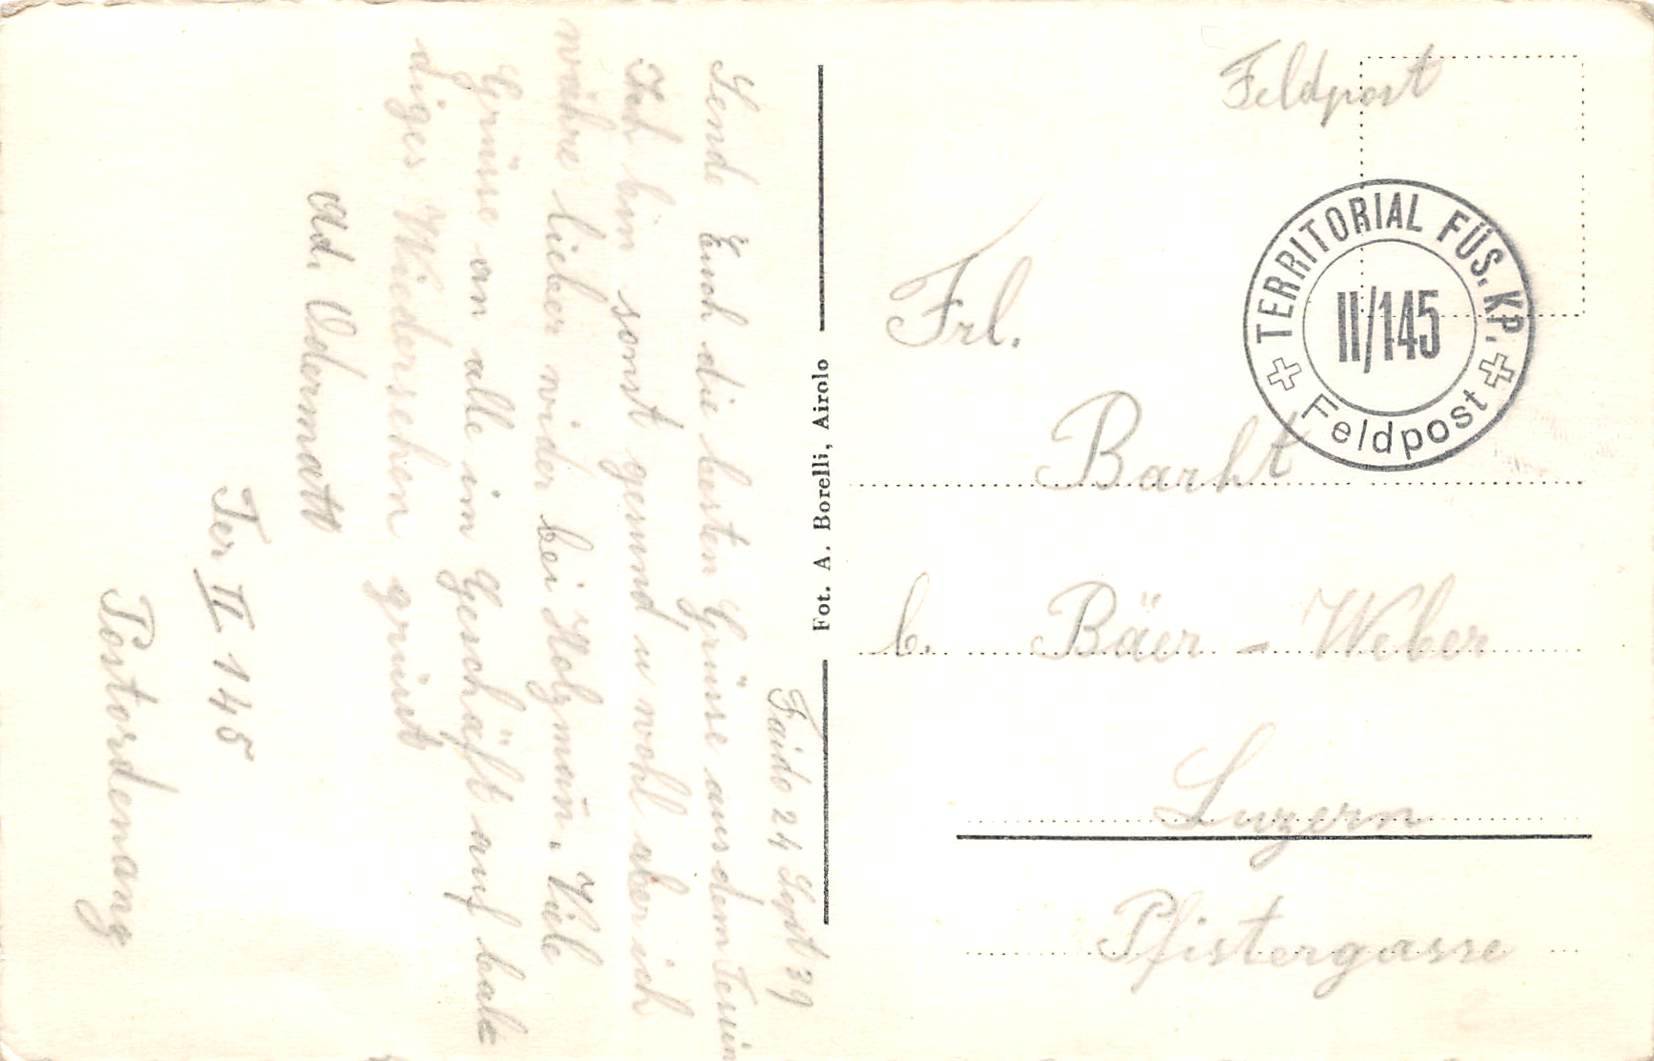 Faido 24 Sept 39
Sende Euch die besten Grüsse aus dem Tessin
Ich bin sonst gesund u wohl aber ich
währe lieber wider bei Holzman. Viele
Grüsse an alle im Geschäft auf bal
diges Wiedersehen grüsst
Ad. Odermatt
Ter II 145
Postordenanz
Fot. A. Borelli, Airolo
Feldpost
TERRITORIAL FÜS. KP.
II/145
Feldpost
Frl.
Barht
b. Bäer - Weber
Luzern
Pfistergasse